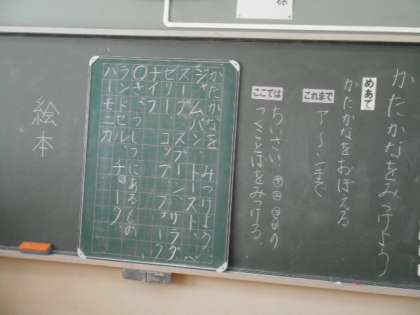 かたかなをみつけよう
めあて
かたかなをおぼえる
これまで
ア〜ンまで
ここでは
ちいさい
つくことばをみつける。
かたかなを みつけよう。
ジャムパン、トースト、
スープ、スプーン、サラダ
ゼリー、コップ、フォーク
ナイフ
ランドセル、チョーク、
ハーモニカ
絵本